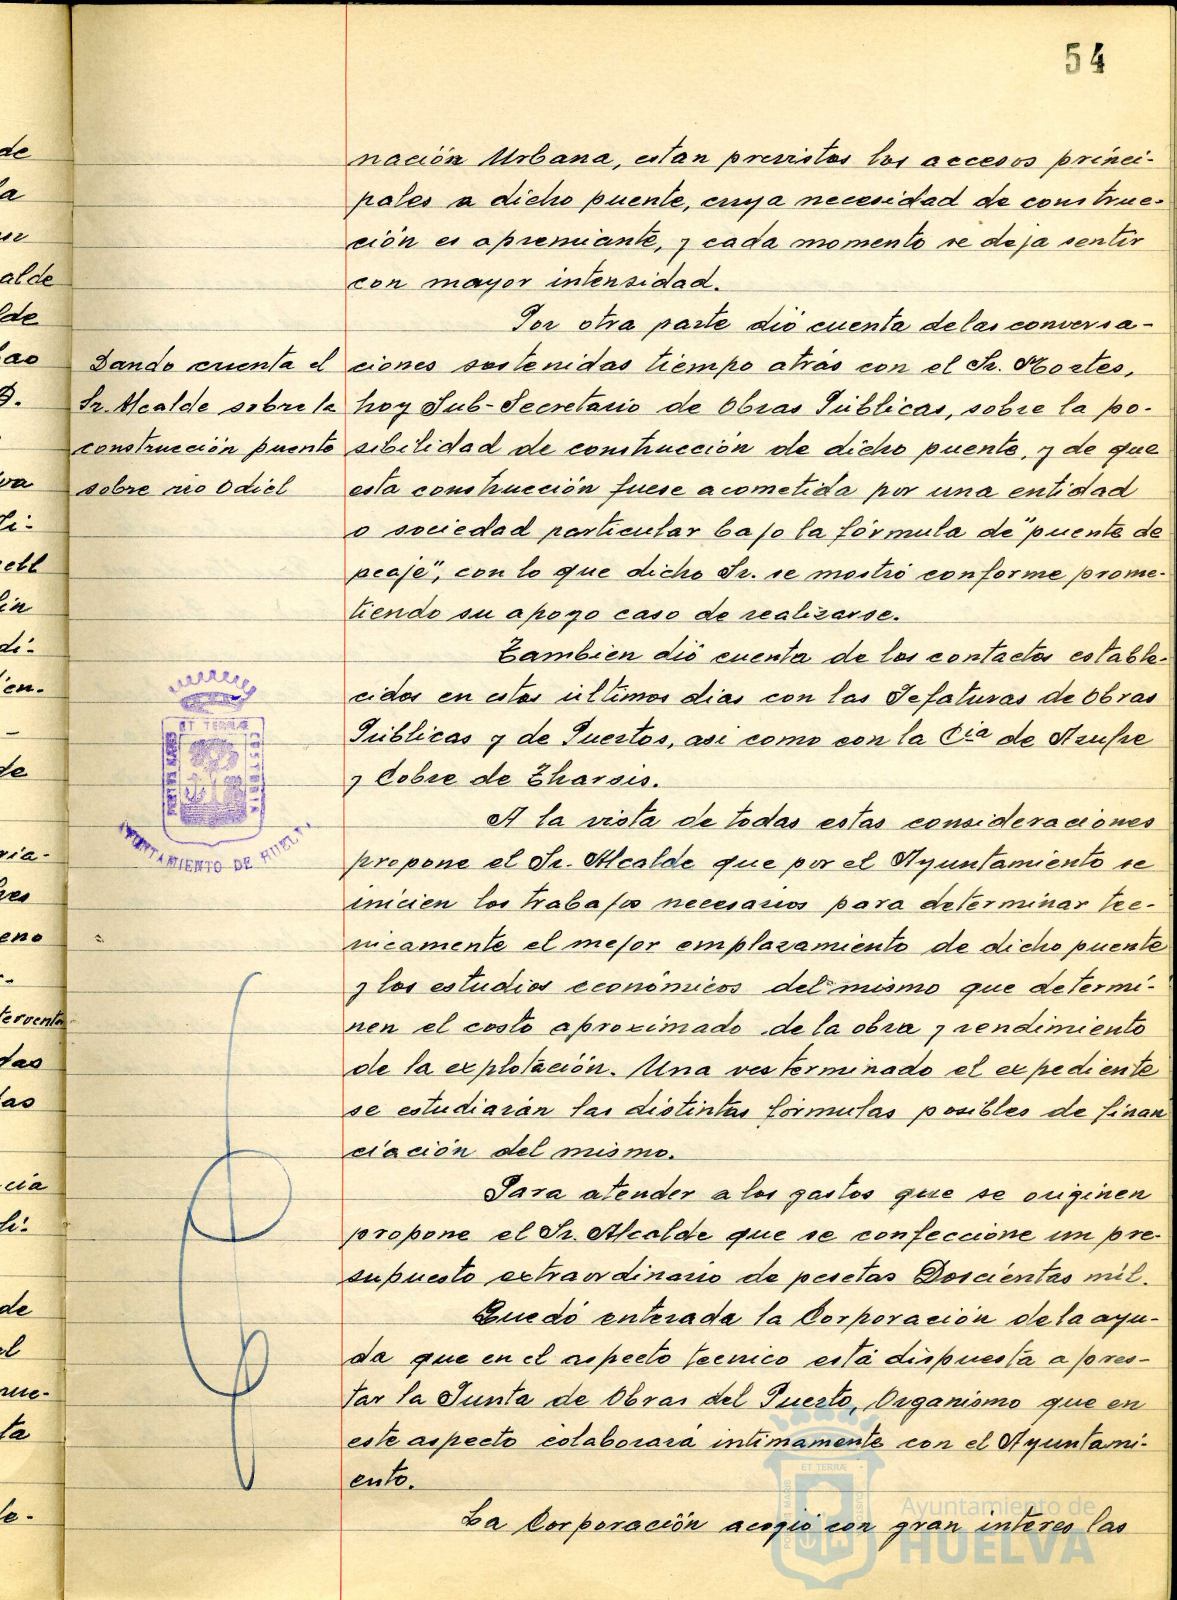 54
nación Urbana, estan previstos los accesos princi-
pales a dicho puente, cuya necesidad de construc-
ción es apremiante, y cada momento se deja sentir
con mayor intensidad.
Por otra parte dió cuenta de las conversa-
ciones sostenidas tiempo atrás con el Sr. Mortes,
hoy Sub-Secretario de Obras Públicas, sobre la po-
sibilidad de construcción de dicho puente, y de que
esta construcción fuese acometida por una entidad
o sociedad particular bajo la fórmula de "puente de
peaje", con lo que dicho Sr. se mostró conforme prome-
tiendo su apoyo caso de realizarse.
Tambien dió cuenta de los contactos estable-
cidos en estos últimos dias con las Jefaturas de Obras
Públicas y de Puertos, asi como con la Cia de Azufre
y Cobre de Tharsis.
A la vista de todas estas consideraciones
propone el Sr. Alcalde que por el Ayuntamiento se
inicien los trabajos necesarios para determinar tec-
nicamente el mejor emplazamiento de dicho puente
y los estudios económicos del mismo que determi-
nen el costo aproximado de la obra y rendimiento
de la explotación. Una vez terminado el expediente
se estudiarán las distintas fórmulas posibles de finan
ciación del mismo.
Para atender a los gastos que se originen
propone el Sr. Alcalde que se confeccione un pre-
supuesto extraordinario de pesetas Doscientas mil.
Quedó enterada la Corporación de la ayu-
da que en el aspecto tecnico está dispuesta a pres-
tar la Junta de Obras del Puerto, Organismo que en
este aspecto colaborará intimamente con el Ayuntami-
ento.
La Corporación acogió con gran interes las
Dando cuenta el
Sr. Alcalde sobre la
construcción puente
sobre rio Odiel
ET TERRÆ
PORTUS MARIS
CUSTODIA
AYUNTAMIENTO DE HUELVA
de
la
alde
lde
D.
lin
di-
en-
de
ria-
eno
das
las
cia
de
el
rue-
ta
Ayuntamiento de
HUELVA